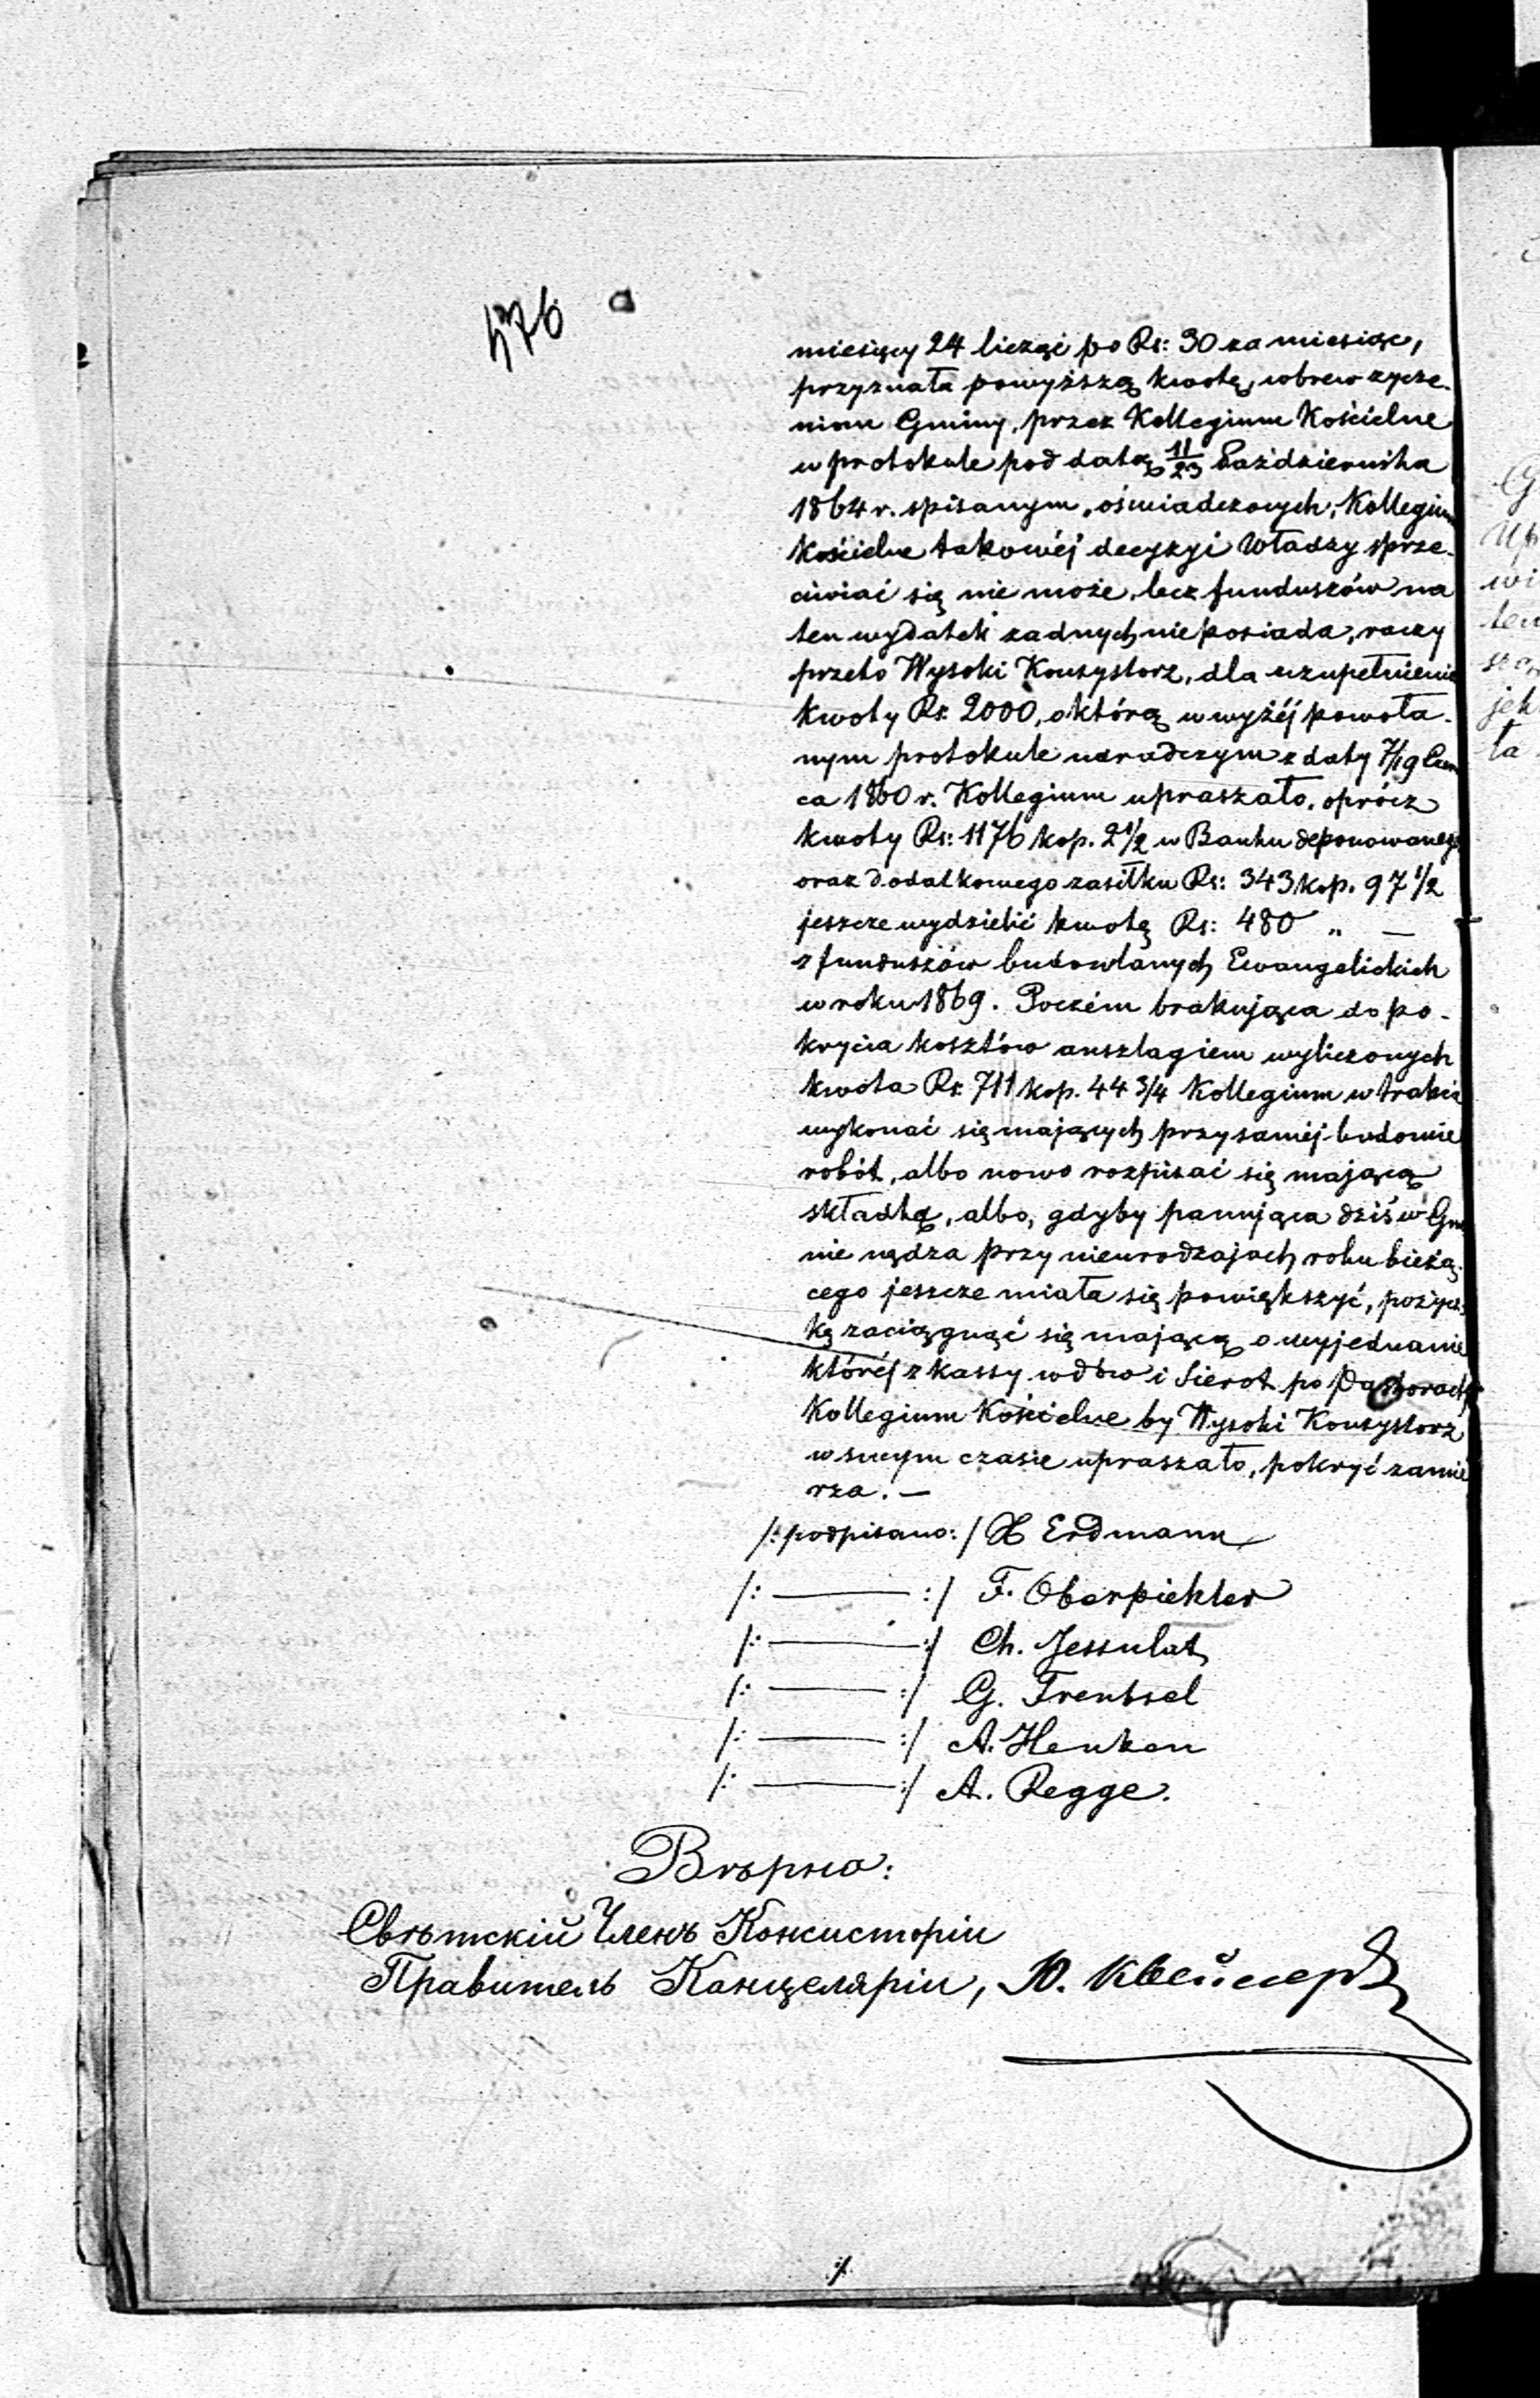 576 a
miesięcy 24 licząc po Rs: 30 za miesiąc,
przyznała powyższą kwotę, wbrew życze-
niom Gminy, przez Kollegium Kościelne
w protokule pod datą 11/23 Października
1864 r. spisanym, oświadczonych; Kollegium
Kościelne takowéj decyzyi Władzy sprze-
ciwiać się nie może, lecz funduszów na
ten wydatek żadnych nie posiada, raczy
przeto Wysoki Konsystorz, dla uzupełnienia
kwoty Rs: 2000, o którą w wyżéj powoła-
nym protokule naradczym z daty 7/19 Czerw
ca 1860 r. Kollegium upraszało, oprócz
kwoty Rs: 1176 kop. 2 1/2 w Banku deponowanéj
oraz dodatkowego zasiłku Rs: 343 kop. 97 1/2
jeszcze wydzielić kwotę Rs: 480 „ —
z funduszów budowlanych Ewangelickich
w roku 1869. Poczém brakująca do po-
krycia kosztów anszlagiem wyliczonych
kwota Rs: 711 kop. 44 3/4 Kollegium w trakcie
wykonać się mających przy saméj budowie
robót, albo nowo rozpisać się mającą
składką, albo, gdyby panująca dziś w Gmi
nie nędza przy nieurodzajach roku bieżą-
cego jeszcze miała się powiększyć, pożycz-
ką zaciągnąć się mającą o wyjednanie
któréj z kassy wdów i Sierot po Pastorach
Kollegium Kościelne by Wysoki Konsystorz
w swym czasie upraszało, pokryć zamie
rza. —
/: podpisano: / H Erdmann
/: ——— :/ F. Oberpichler
/: ——— :/ Ch. Jessulat
/: ——— :/ G. Trentsel
/: ——— :/ A. Henken
/: ——— :/ A. Regge.
Вѣрно:
Свѣтскій Членъ Консисторіи
Правитель Канцеляріи, Ю.